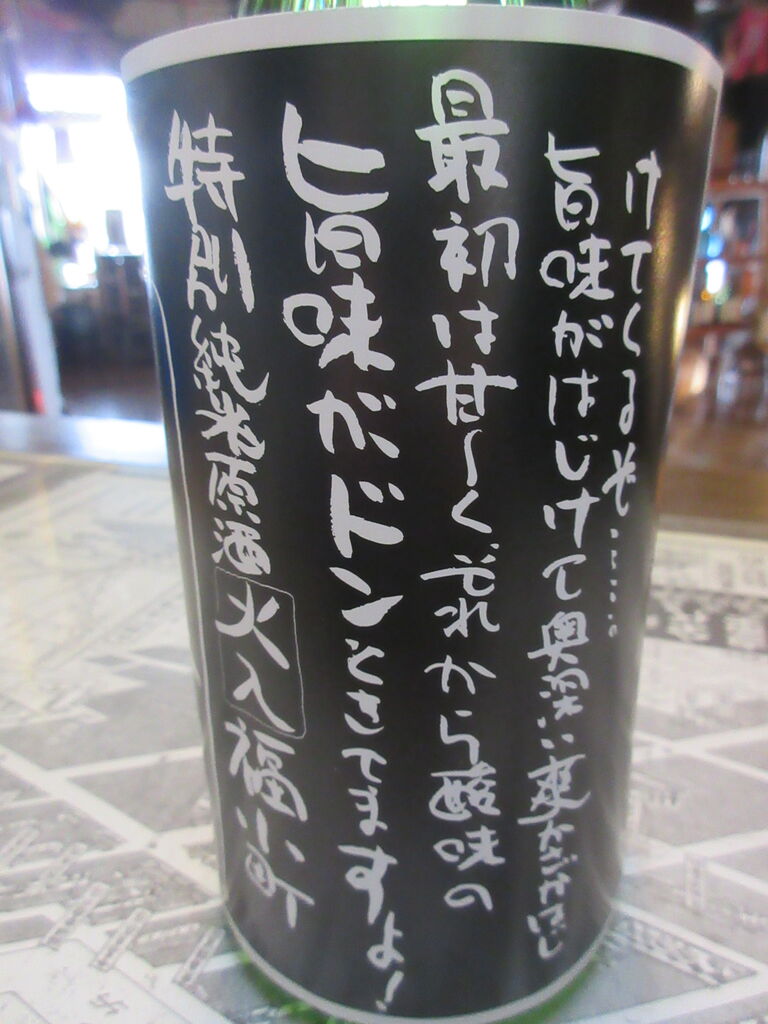 特別純米原酒火入福小町
旨味がドンときてますよ!
最初は甘〜くそれから酸味の
旨味がはじけて奥深い爽かさがはじ
けてくるぞ……